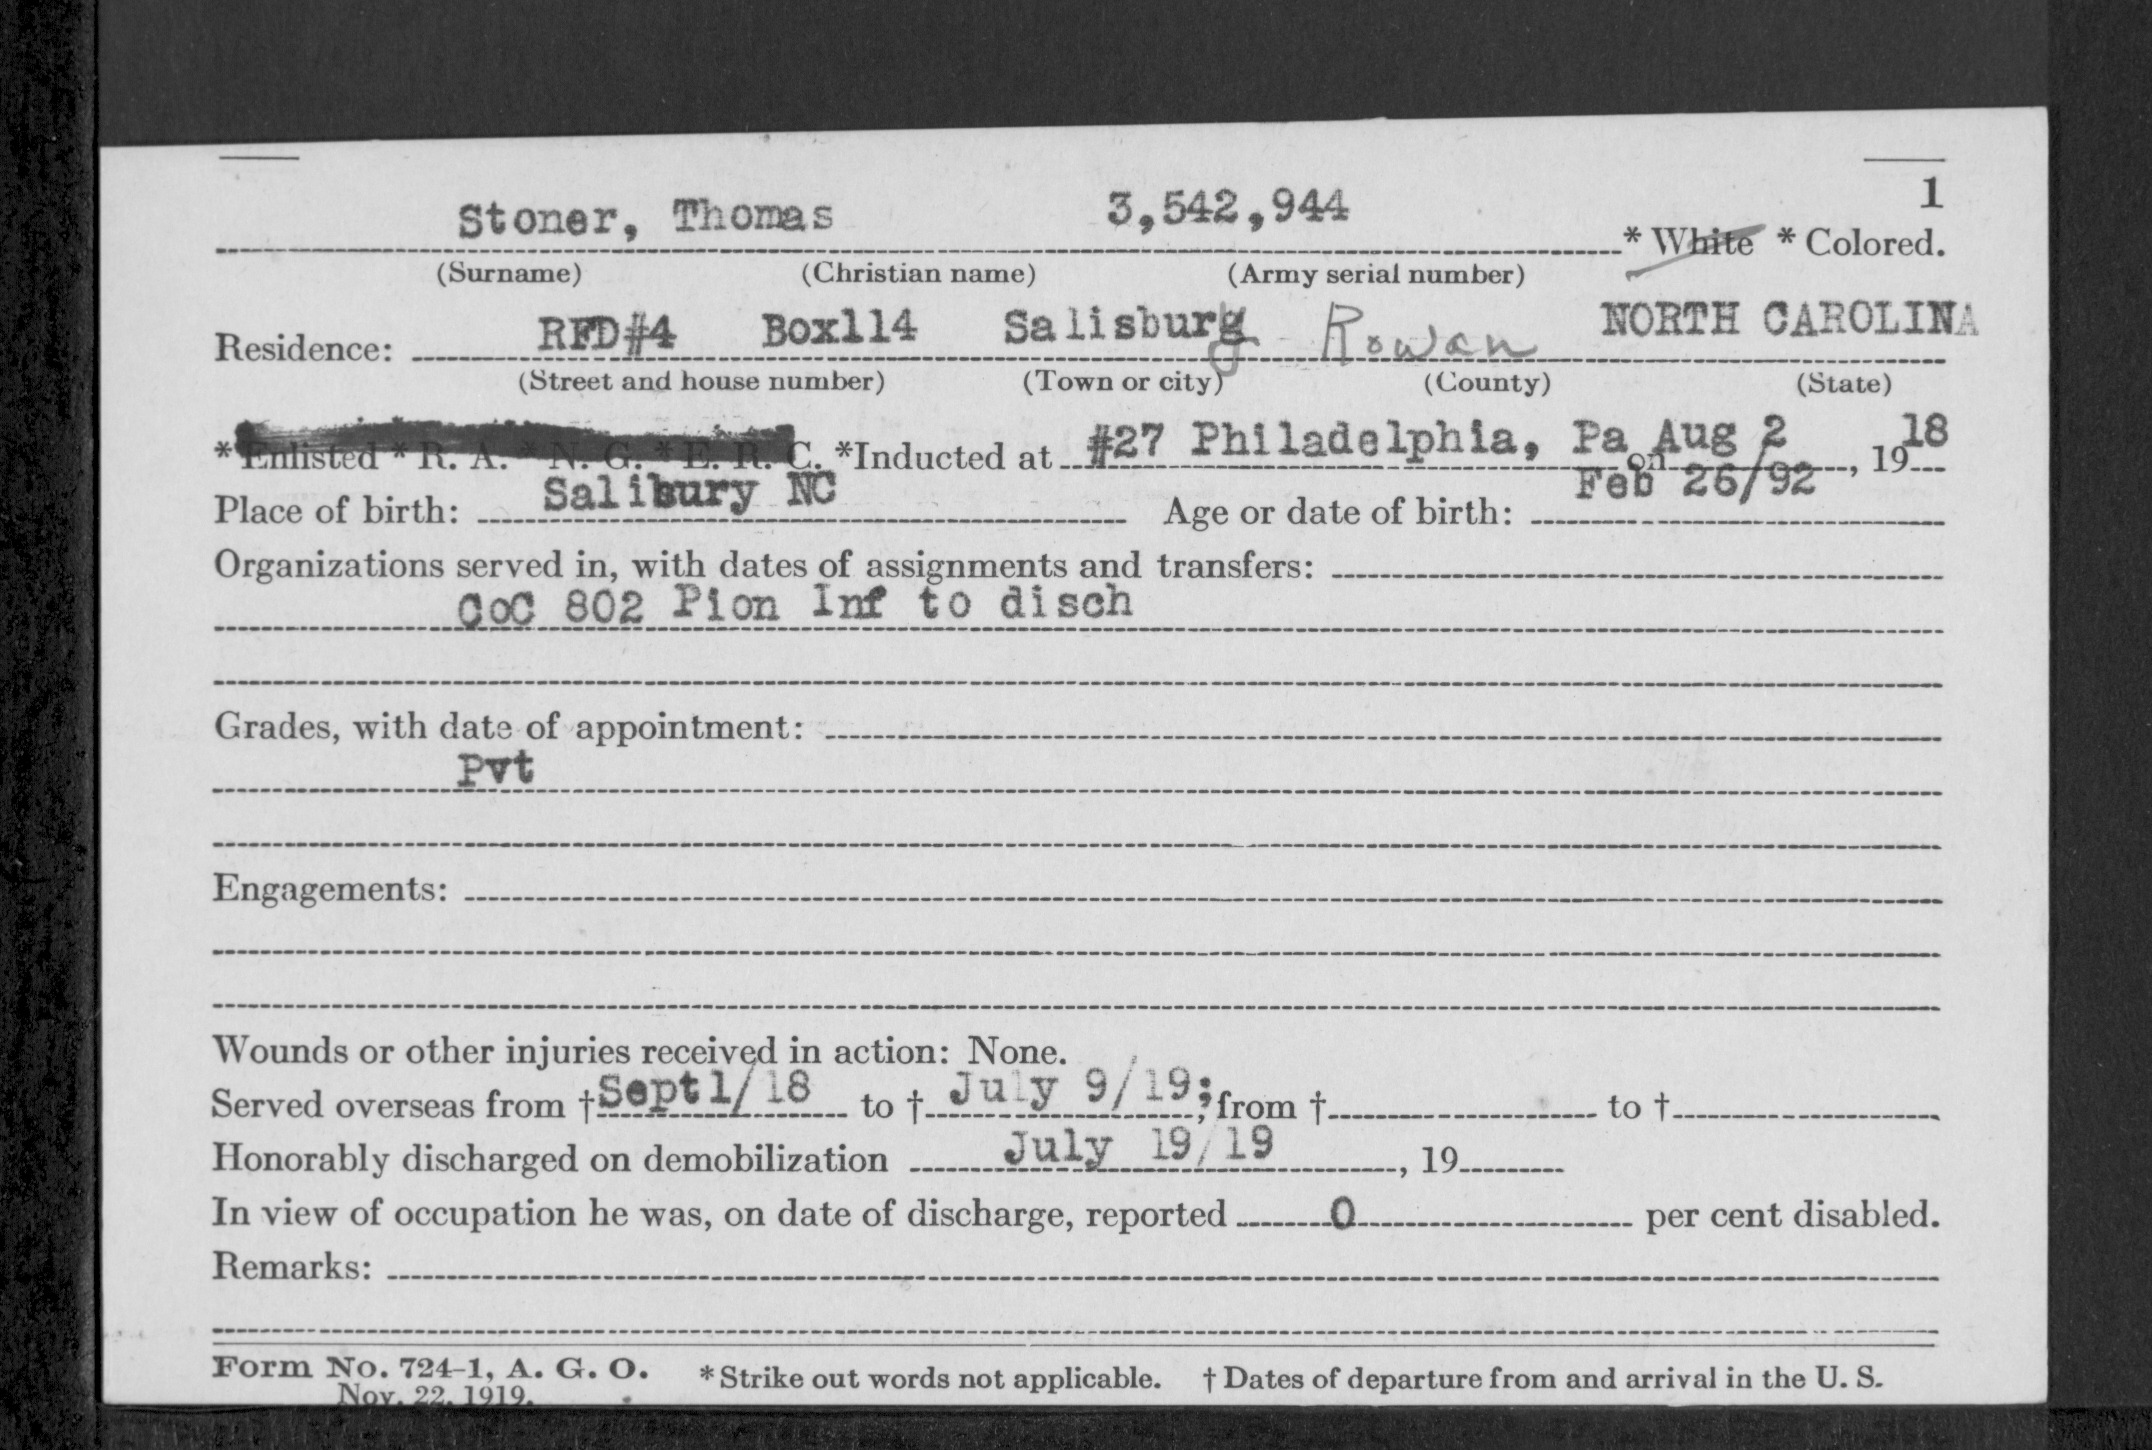 1
Stoner, Thomas 3,542,944 * White * Colored.
(Surname) (Christian name) (Army serial number)
Residence: RFD#4 Box114 Salisbury Rowan NORTH CAROLINA
(Street and house number) (Town or city) (County) (State)
* Enlisted * R. A. * N. G. * E. R. C. *Inducted at #27 Philadelphia, Pa on Aug 2, 1918
Place of birth: Salibury NC Age or date of birth: Feb 26/92
Organizations served in, with dates of assignments and transfers:
CoC 802 Pion Inf to disch
Grades, with date of appointment:
Pvt
Engagements:
Wounds or other injuries received in action: None.
Served overseas from † Sept 1/18 to † July 9/19; from † to †
Honorably discharged on demobilization July 19/19, 19
In view of occupation he was, on date of discharge, reported 0 per cent disabled.
Remarks:
Form No. 724-1, A. G. O. * Strike out words not applicable. † Dates of departure from and arrival in the U. S.
Nov. 22, 1919.